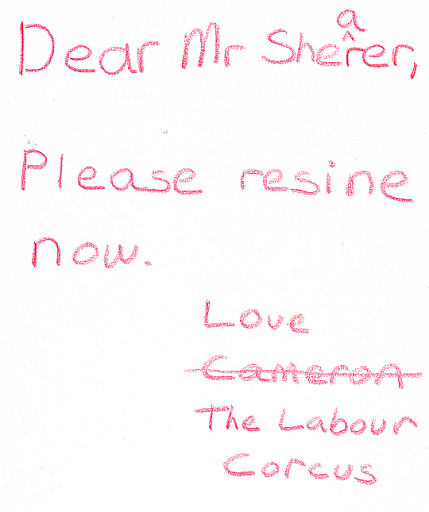 Dear Mr Shearer,
Please resine
now.
Love
Cameron
The Labour
Corcus